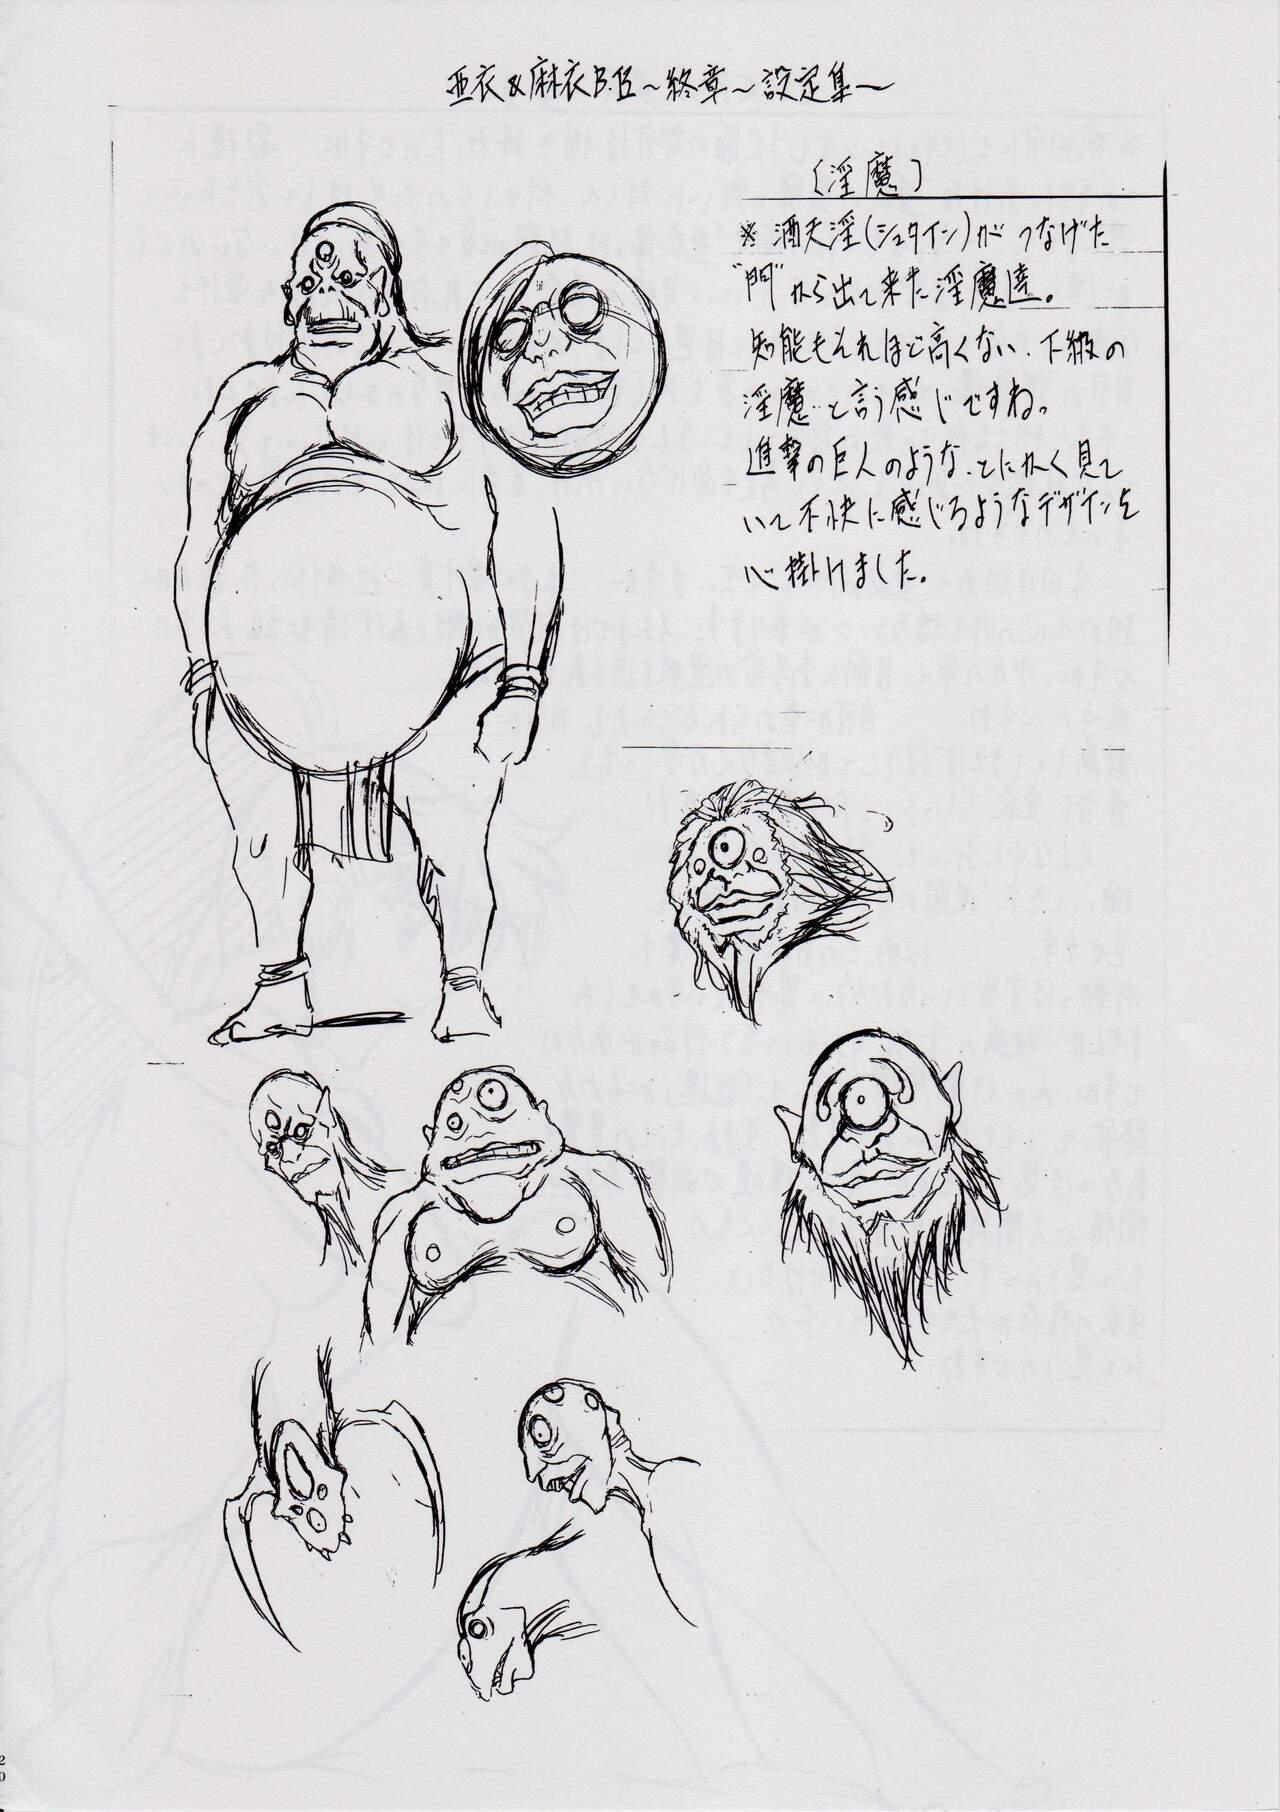 亜衣&麻衣B.B~終章~設定集~
(淫魔)
※酒天淫(シュタイン)がつなげた
"門"から出て来た淫魔達。
知能もそれほど高くない、下級の
淫魔…と言う感じですね。
進撃の巨人のような、とにかく見て
いて不快に感じるようなデザインを
心掛けました。
20